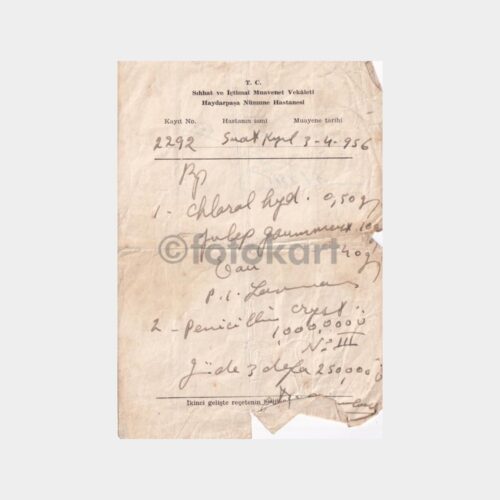 T. C.
Sıhhat ve İçtimaî Muavenet Vekâleti
Haydarpaşa Nümune Hastanesi
Kayıt No. Hastanın ismi Muayene tarihi
2292 Suat 3-4-956
Rp
1 - Chloral hyd. 0,50 g
Julep gaummeux 100
©fotokart
Eau 40 g
P. 1. Lavman
2 - Penicillin cryst.
1,000,000 ö
No III
Günde 3 defa 250,000 ö
İkinci gelişte reçetenin